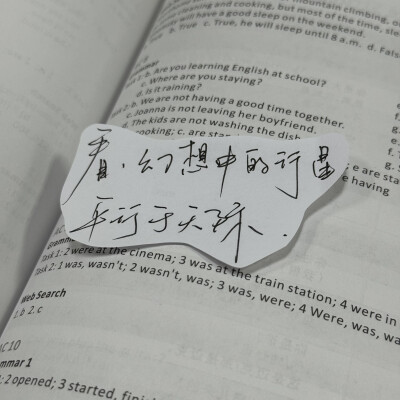 mountain climbing, o
cleaning and cooking, but most of the time, sle
will have a good sleep on the weekend.
b. True c. True, he will sleep until 8 a.m. d. Fals
b. Are you learning English at school?
c. Where are you staying?
d. Is it raining?
b. We are not having a good time together.
c. Joanna is not leaving her boyfriend.
The kids are not washing the dish
cooking; c. are star
e are sta
e having
看.幻想中的行星
平行于天际.
Task 1: 2 were at the cinema; 3 was at the train station; 4 were in
Task 2: 1 was, wasn't; 2 wasn't, was; 3 was, were; 4 Were, was, wa
Web Search
1. b 2. c
AC 10
mmar 1
1: 2 opened; 3 started, finis